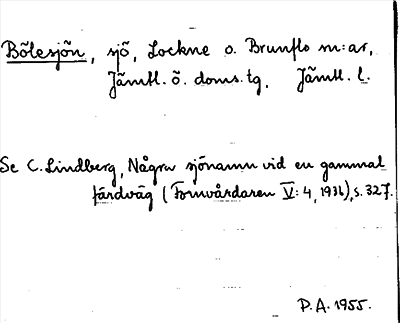 Bölesjön, sjö, Lockne o. Brunflo sn:ar,
Jämtl. ö. doms.tg, Jämtl. l.
Se C. Lindberg, Några sjönamn vid en gammal
färdväg (Fornvårdaren V: 4, 1936), s. 327.
P.A. 1955.